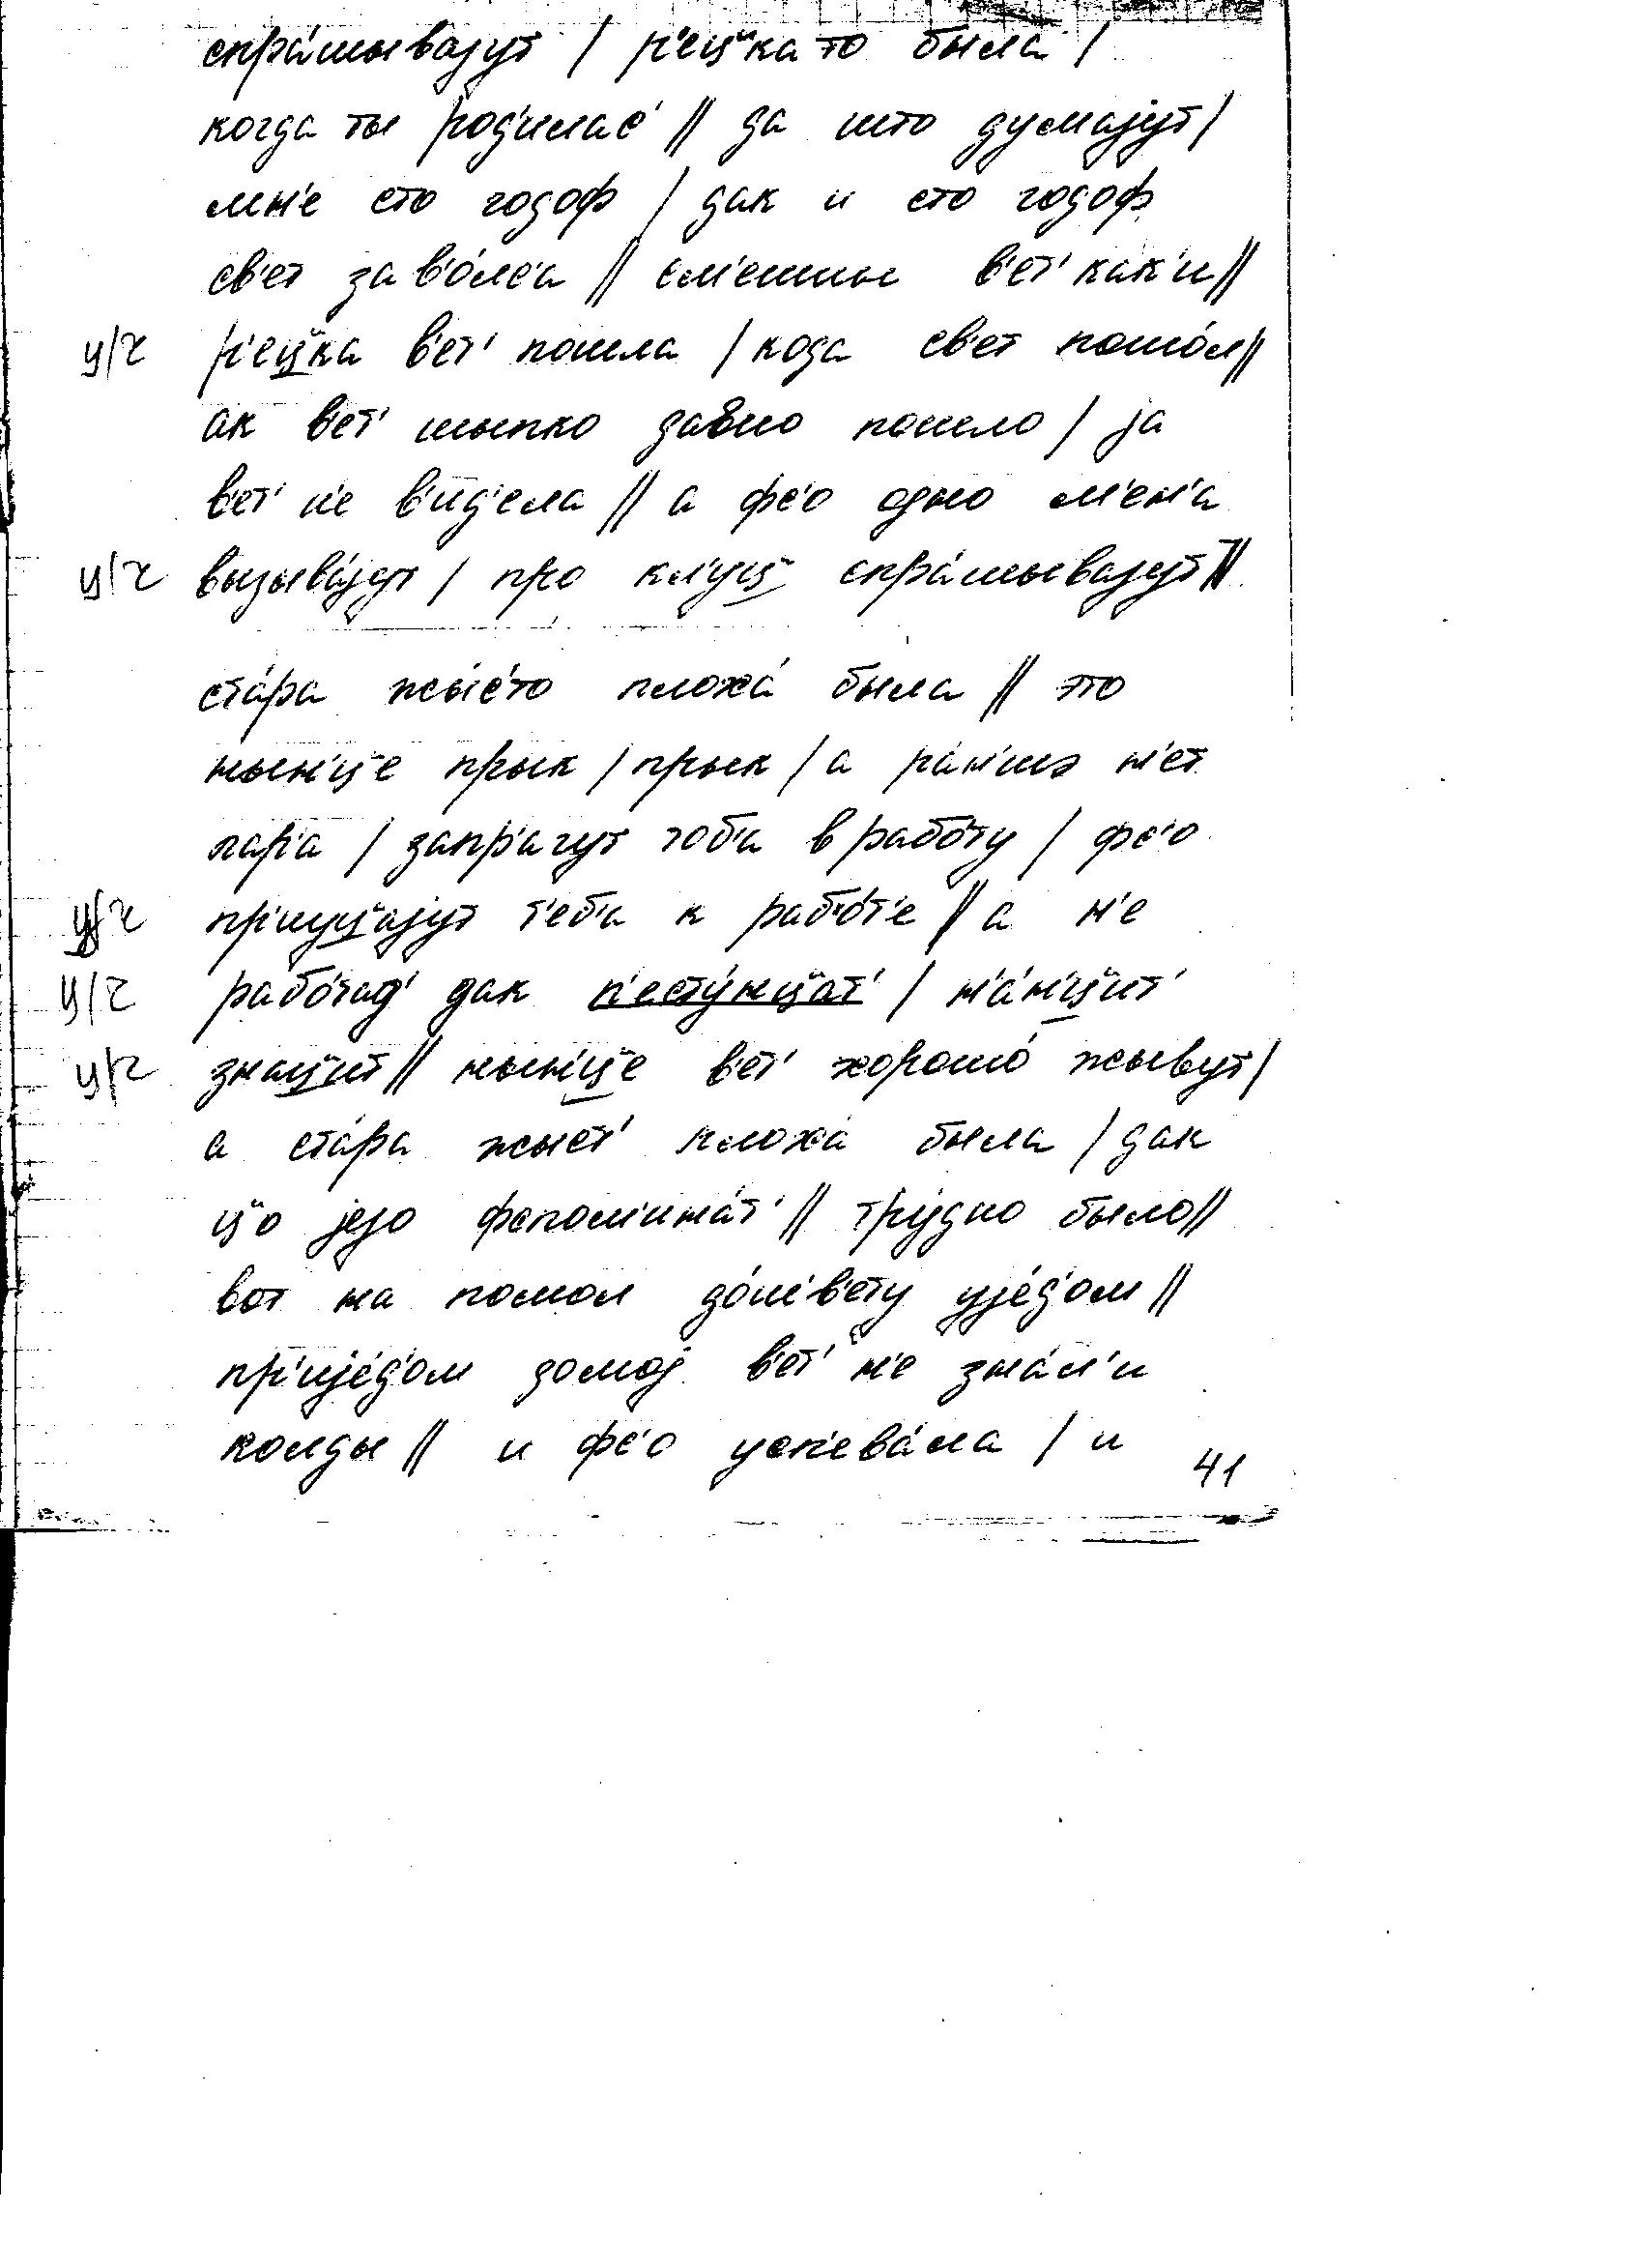 спра́шывајут / р'ец"ка то была /
когда ты род'илас' // да што думајут /
мн'е сто годоф / дак и сто годоф
св'ет зав'о́лс'а // см'ешны в'ет' как'и //
ц/ч р'ец"ка в'ет' пошла / кода св'ет пошо́л //
ак в'ет' шыпко давно пошло / ја
в'ет' н'е в'и́д'ела // а фс'о одно м'ен'а
ц/ч вызыва́јут / про кл'уц" спра́шывајут //
ста́ра жыс'то плоха́ была // это
нын'ц"е прык / прык / а ра́н'шэ н'ет
пар'а / запр'агут тоб'а в рабо́ту / фс'о
ц/ч пр'иуц"ајут т'еб'а к рабо́т'е // а н'е
ц/ч рабо́тад' дак п'есту́нц"ат' / н'а́н'ц"ит'
ц/ч знац"ит // нын'ц"е в'ет' хорошо́ жывут /
а ста́ра жыст' плоха́ была / дак
ц"о јејо фспом'ина́т' // тру́дно было //
вот на помол до́св'ету ује́д'ом //
пр'ије́д'ом домој в'ет' н'е зна́л'и
колды // и фс'о усп'ева́ла / и
41